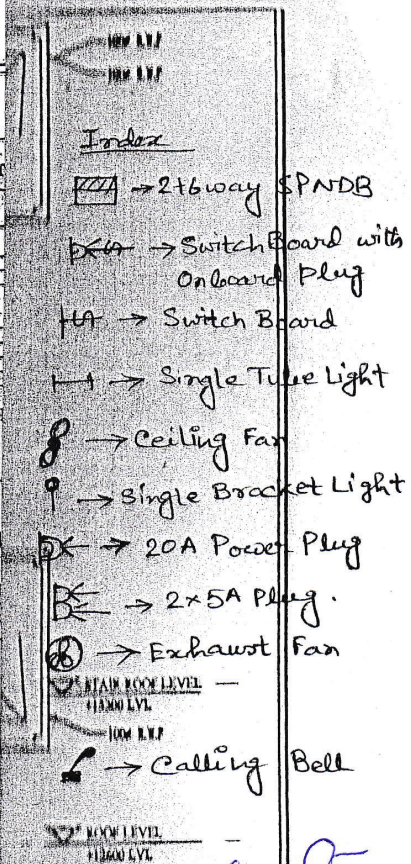 Index
→ 2+6 way SPNDB
→ Switch Board with
Onboard plug
→ Switch Board
→ Single Tube Light
→ Ceiling Fan
→ Single Bracket Light
→ 20A Power Plug
→ 2×5A Plug.
→ Exhaust Fan
STAIR ROOF LEVEL
→ Calling Bell
ROOF LEVEL